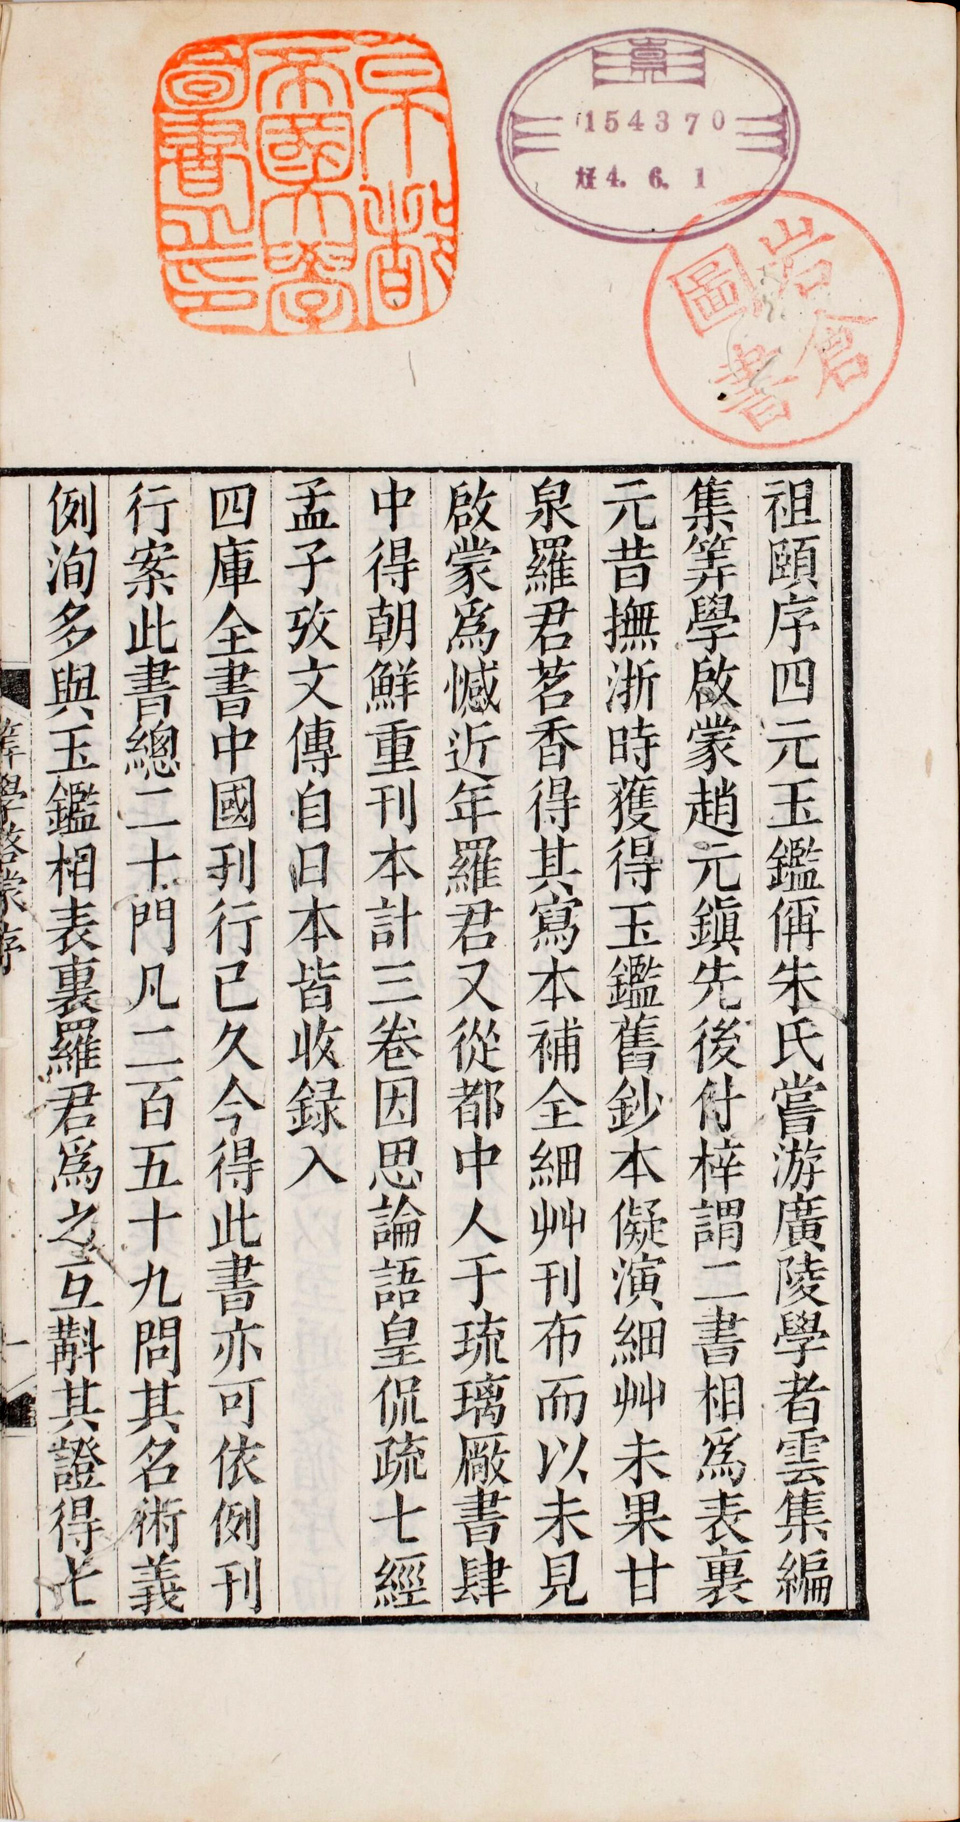 京都
帝國大學
圖書之印
154370
4. 6. 1
岩倉
圖書
祖頤序四元玉鑑偁朱氏嘗游廣陵學者雲集編
集筭學啟蒙趙元鎭先後付梓謂二書相爲表裏
元昔撫浙時獲得玉鑑舊鈔本儗演細艸未果甘
泉羅君茗香得其寫本補全細艸刊布而以未見
啟蒙爲憾近年羅君又從都中人于琉璃廠書肆
中得朝鮮重刊本計三卷因思論語皇侃疏七經
孟子攷文傳自日本皆收録入
四庫全書中國刊行已久今得此書亦可依例刊
行案此書總二十門凡二百五十九問其名術義
例洵多與玉鑑相表裏羅君爲之互斠其證得七
筭學啓蒙序
一